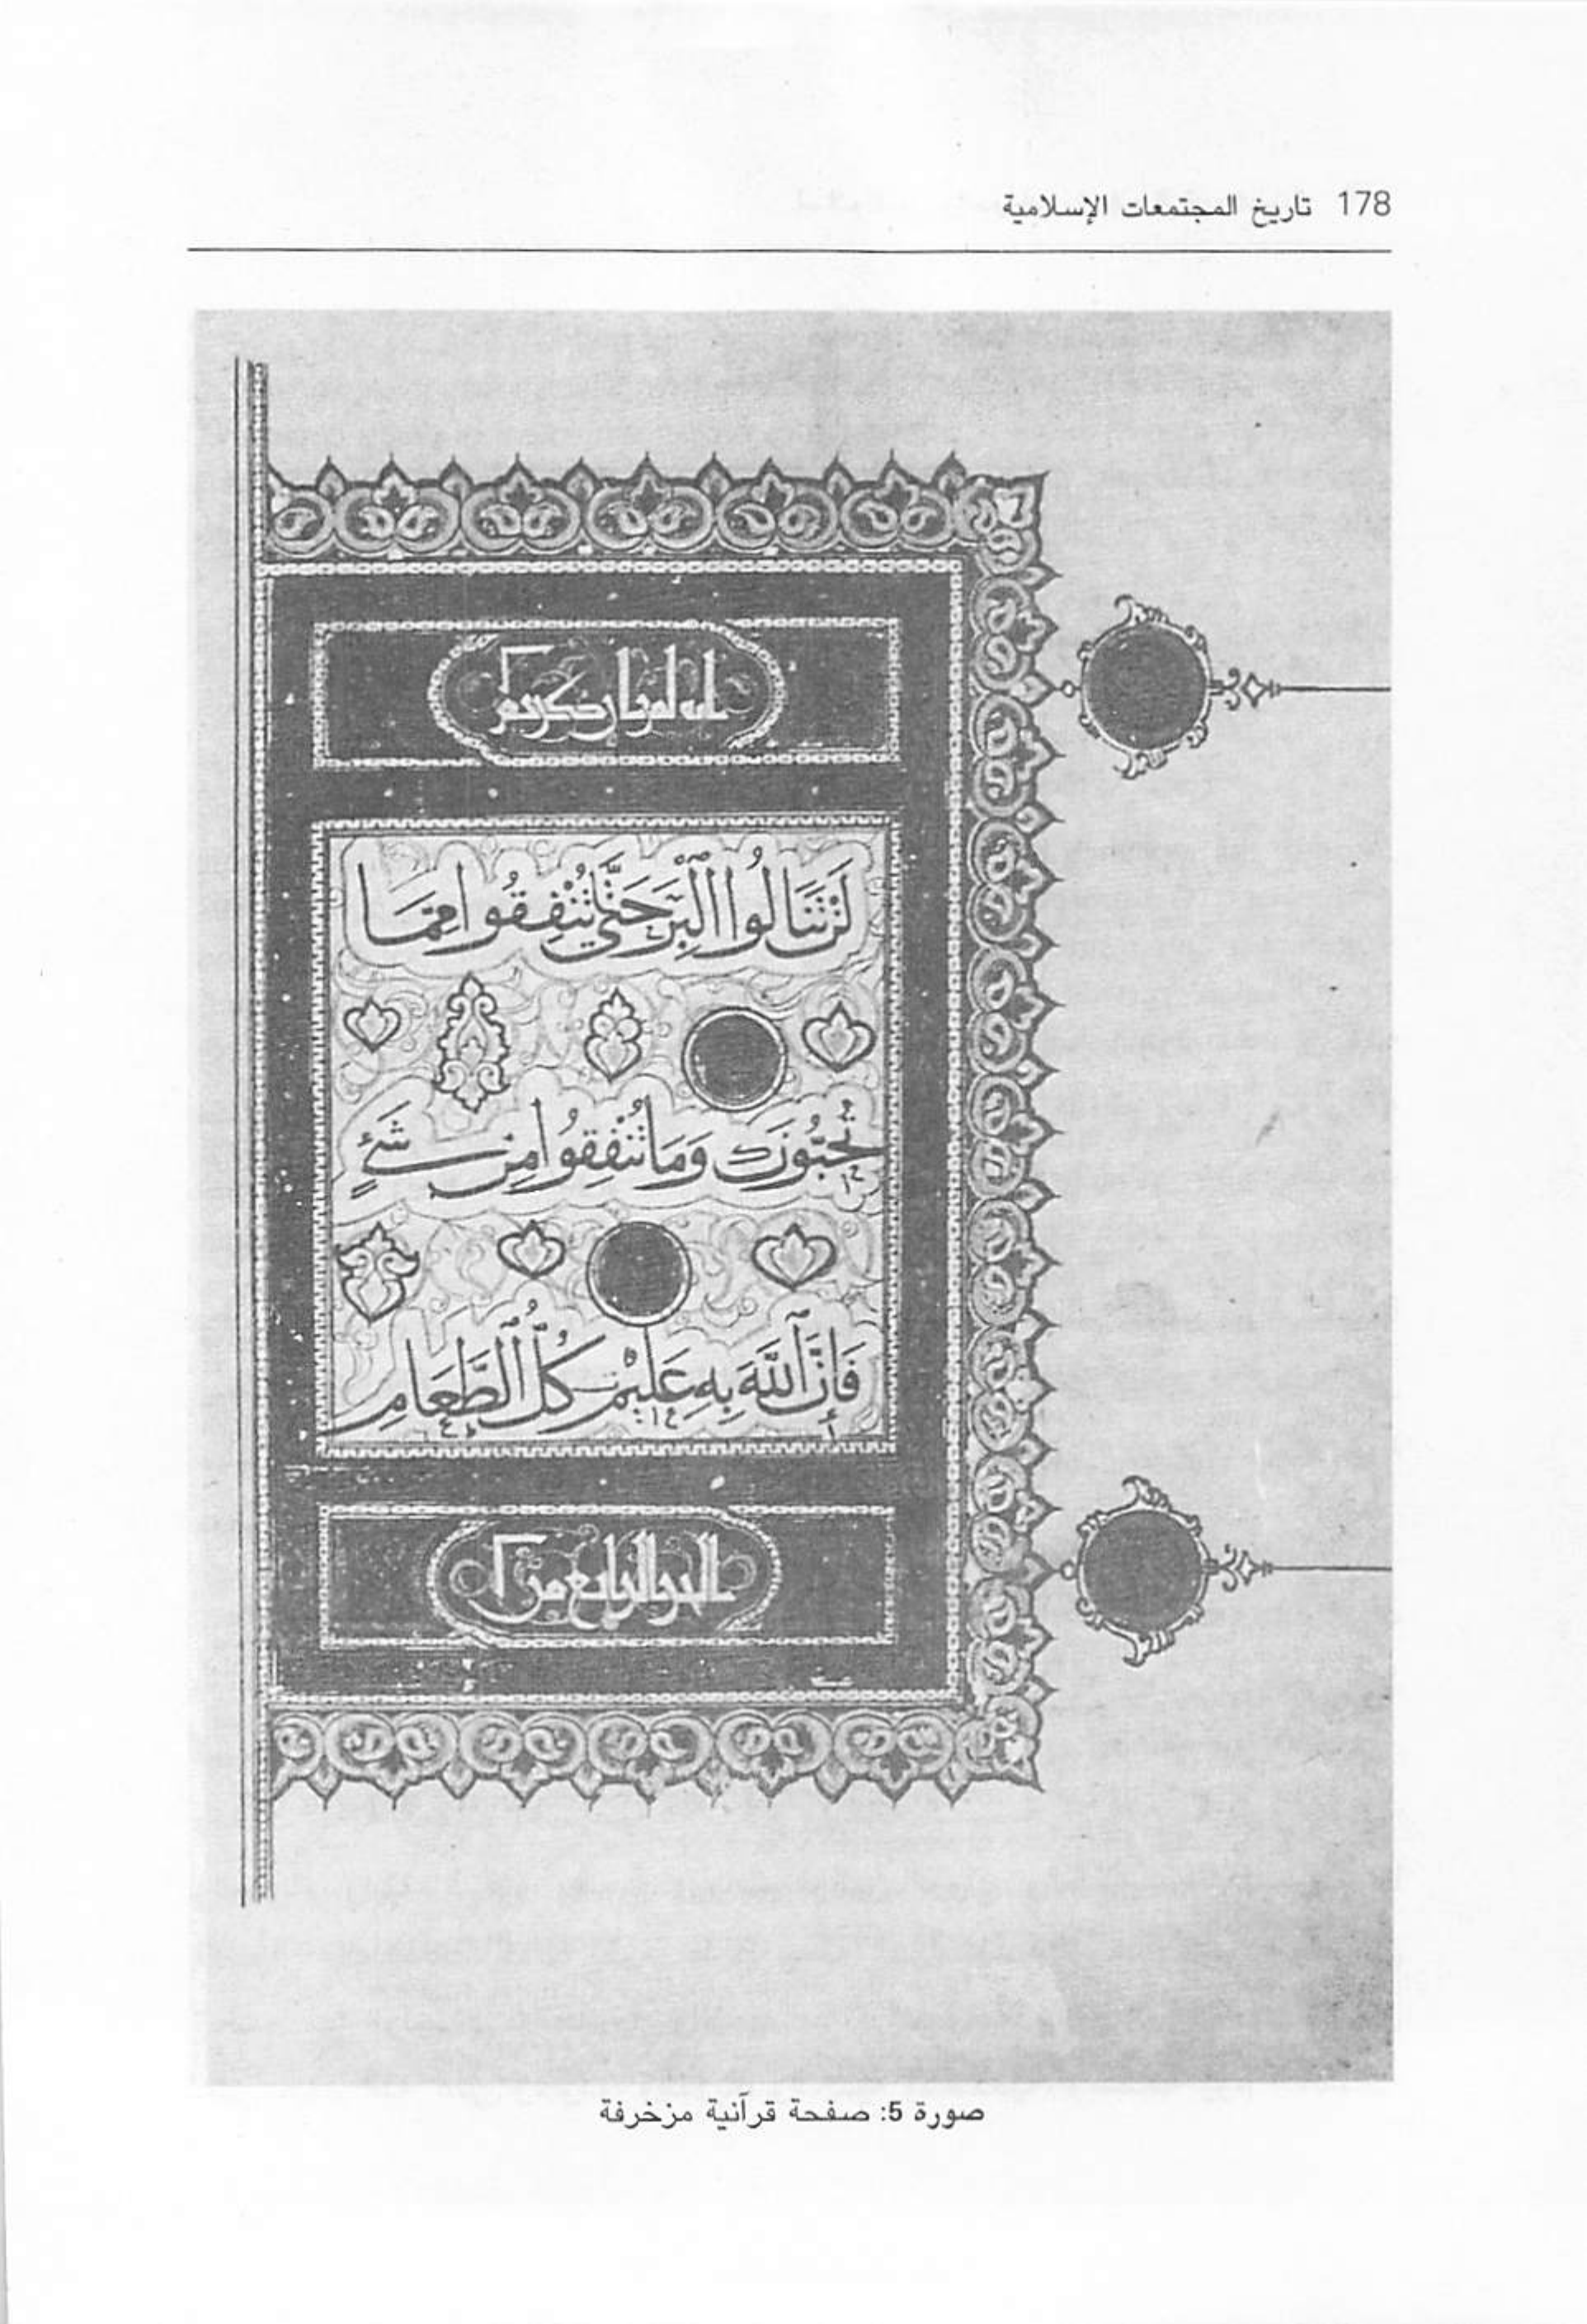 178 تاريخ المجتمعات الإسلامية
إنه لقرآن كريم
لَنْ تَنَالُوا الْبِرَّ حَتَّىٰ تُنْفِقُوا مِمَّا
تُحِبُّونَ وَمَا تُنْفِقُوا مِنْ شَيْءٍ
فَإِنَّ اللَّهَ بِهِ عَلِيمٌ كُلُّ الطَّعَامِ
الجزو الرابع من
صورة 5: صفحة قرآنية مزخرفة